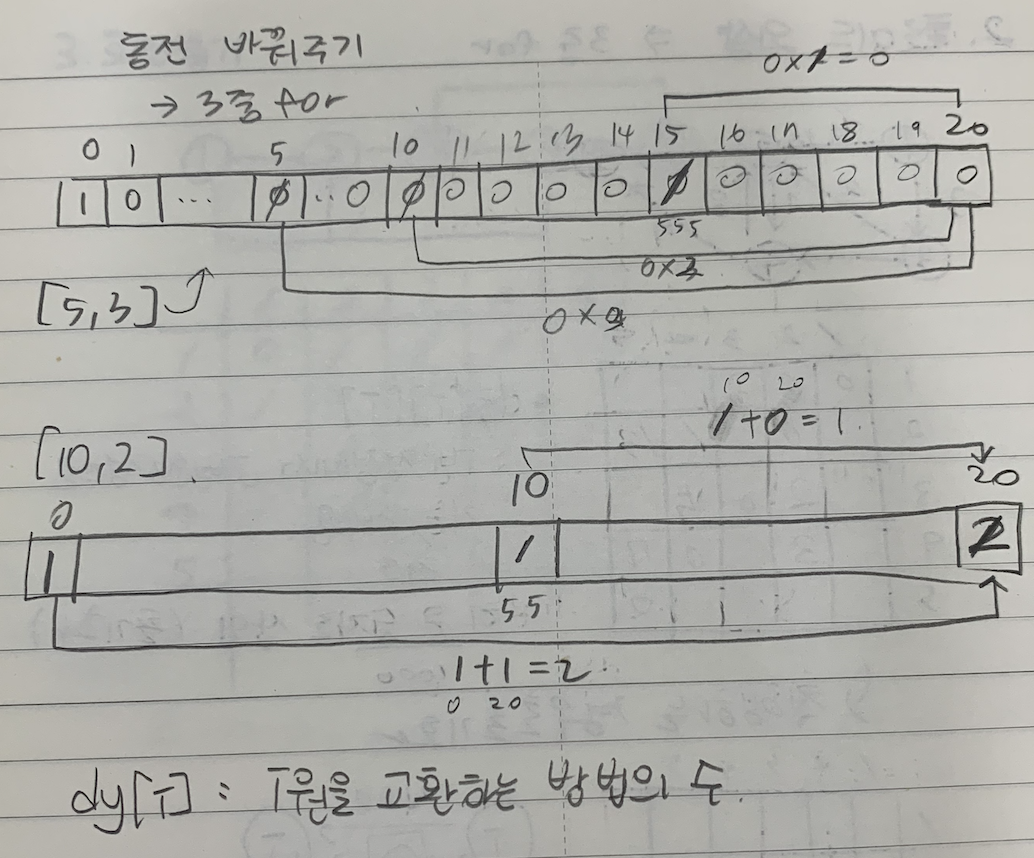 동전 바꿔주기
→ 3중 for
0x1 = 0
0 1 5 10 11 12 13 14 15 16 17 18 19 20
1 0 ... 0 .. 0 0 0 0 0 0 0 0 0 0 0
555
[5,3]
0x2
0x
10 20
1+0=1.
[10,2]
10 20
0
1 1 2
55
1+1=2.
0 20
dy[T] : T원을 교환하는 방법의 수.